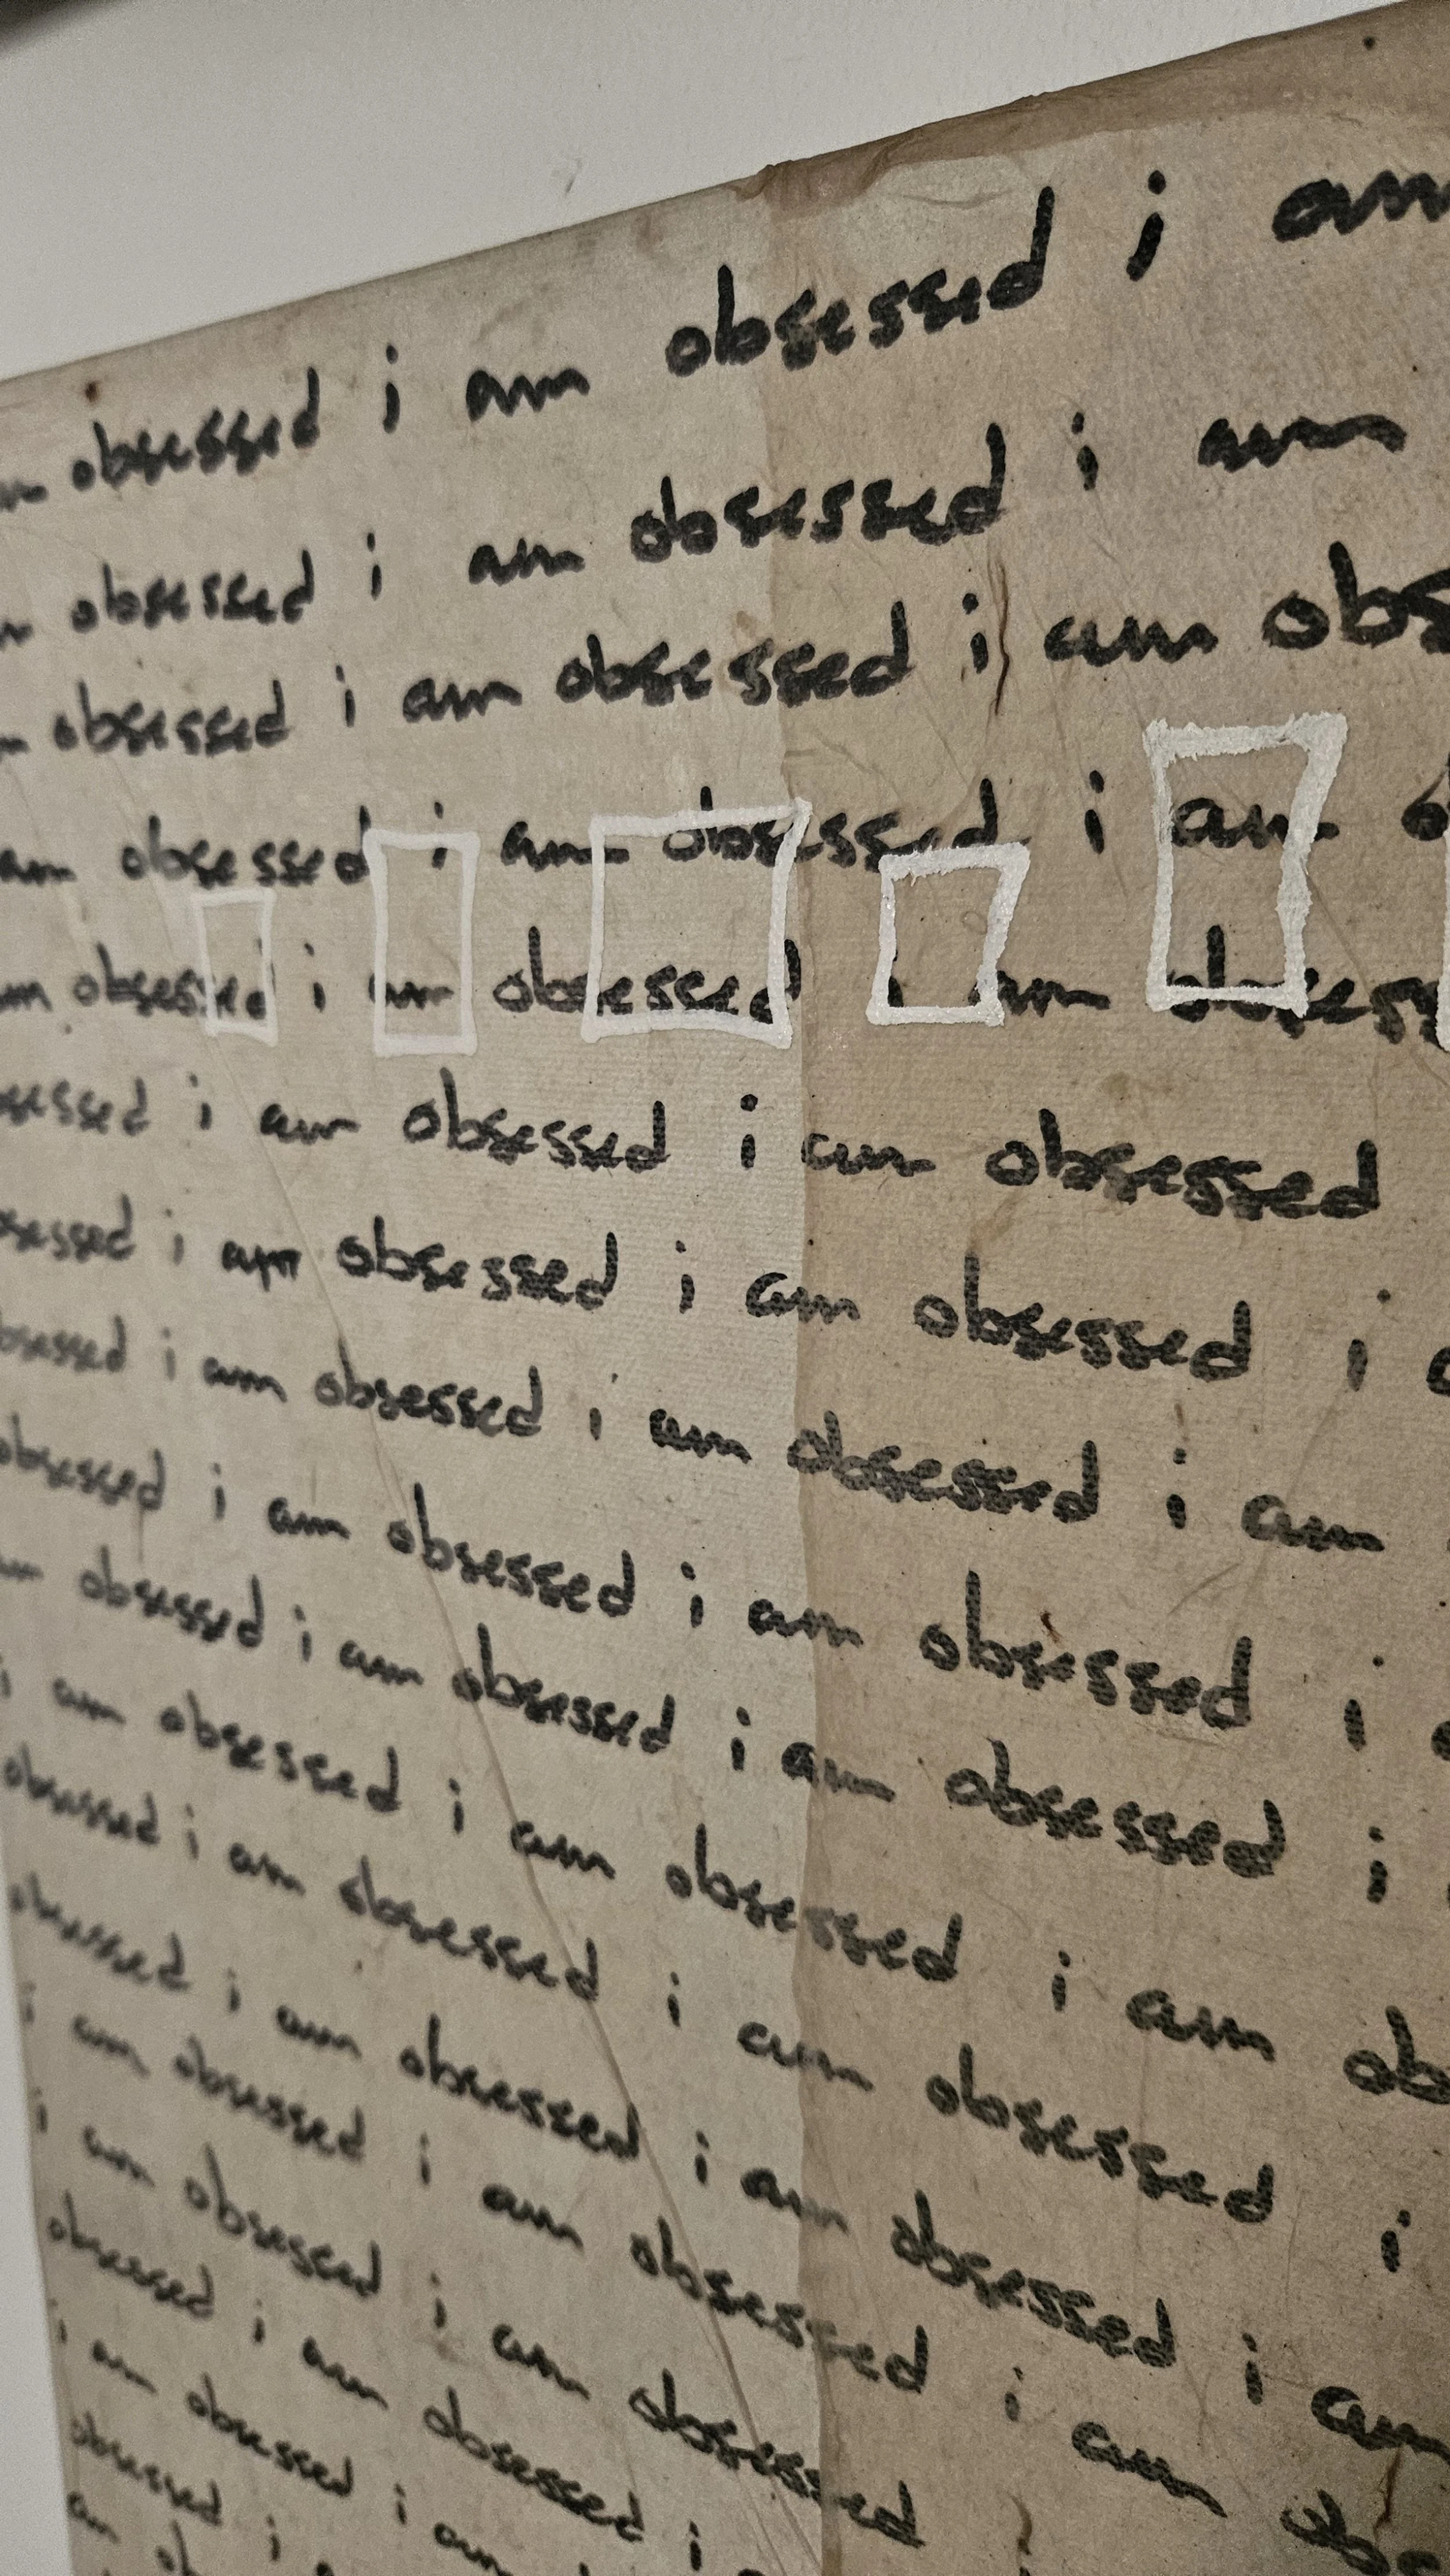 obsessed i am obsessed i am
obsessed i am obsessed i am
obsessed i am obsessed i am obs
am obsessed i am obsessed i am o
am obsessed i am obsessed i am obsess
sessed i am obsessed i am obsessed
sessed i am obsessed i am obsessed i a
bsessed i am obsessed i am obsessed i am
obsessed i am obsessed i am obsessed i
am obsessed i am obsessed i am obsessed i
i am obsessed i am obsessed i am ob
obsessed i am obsessed i am obsessed i
obsessed i am obsessed i am obsessed i am
i am obsessed i am obsessed i am
i am obsessed i am obsessed
obsessed i am obsessed i
i am obsessed i am
obsessed i
am